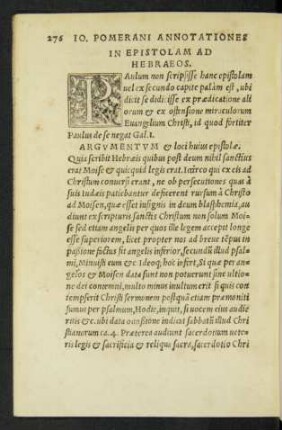 276 IO. POMERANI ANNOTATIONES
IN EPISTOLAM AD
HEBRAEOS.
PAulum non scripsisse hanc epistolam
uel ex secundo capite palàm est, ubi
dicit se didicisse ex prædicatione ali
orum & ex ostensione miraculorum
Euangelium Christi, id quod fortiter
Paulus de se negat Gal. 1.
ARGVMENTVM & loci huius epistolæ.
Quia scribit Hebræis quibus post deum nihil sanctius
erat Mose & quicquid legis erat. Idcirco qui ex eis ad
Christum conuersi erant, ne ob persecutiones quas à
suis iudæis patiebantur deficerent rursum à Christo
ad Moisen, quæ esset insignis in deum blasphemia, au
diunt ex scripturis sanctis Christum non solum Moi
se sed etiam angelis per quos ille legem accepit longe
esse superiorem, licet propter nos ad breue tēpus in
passione factus sit angelis inferior, secundū illud psal
mi, Minuisti eum &c Ideoq; hoc infert, Si quæ per an
gelos & Moisen data sunt non potuerunt sine ultio
ne dei contemni, multo minus inultum erit si quis con
tempserit Christi sermonem postquā etiam præmoniti
sumus per psalmum, Hodie, inquit, si uocem eius audie
ritis &c. ubi data occasione indicat sabbatū illud Chri
stianorum ca. 4. Præterea audiunt sacerdotium uete
ris legis & sacrificia & reliqua sacra, sacerdotio Chri